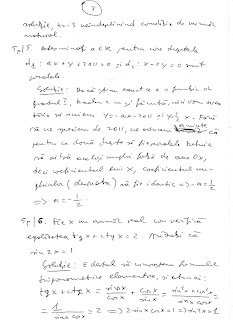 3
soluție, n=-3 neîndeplinind condiția de număr
natural.
5p/5. Determinați a∈R pentru care dreptele
d₁: ax+y+2011=0 și d₂: x-2y=0 sunt
paralele.
Soluție: Dacă știm exact a e o funcție de
gradul I,
să scriem y=-ax-2011 și y=½x. Fără
să ne speriem de 2011, ne aducem aminte că
pentru ca două drepte să fie paralele trebuie
să aibă același unghi față de axa Ox,
deci coeficientul lui x, coeficientul
unghiular (derivata) să fie identic => -a=½
=> a=-½.
5p/6. Fie x un număr real care verifică
egalitatea tgx+ctgx=2. Arătați că
sin2x=1
Soluție: E destul să cunoaștem formule
trigonometrice elementare, și atunci:
tgx+ctgx = sinx/cosx + cosx/sinx = sin²x+cos²x/sinx cosx =
= 1/sinx cosx = 2 => 2sinx cosx=1 => sin2x=1